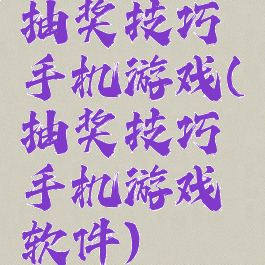 抽奖技巧
手机游戏(
抽奖技巧
手机游戏
软件)